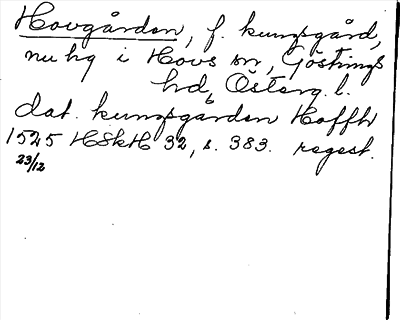 Hovgården, f. kungsgård,
nu hg i Hovs sn, Göstrings
hd, Österg. l.
dat. kungsgarden Hoffh
1525 HSkH 32, s. 383. regest.
23/12